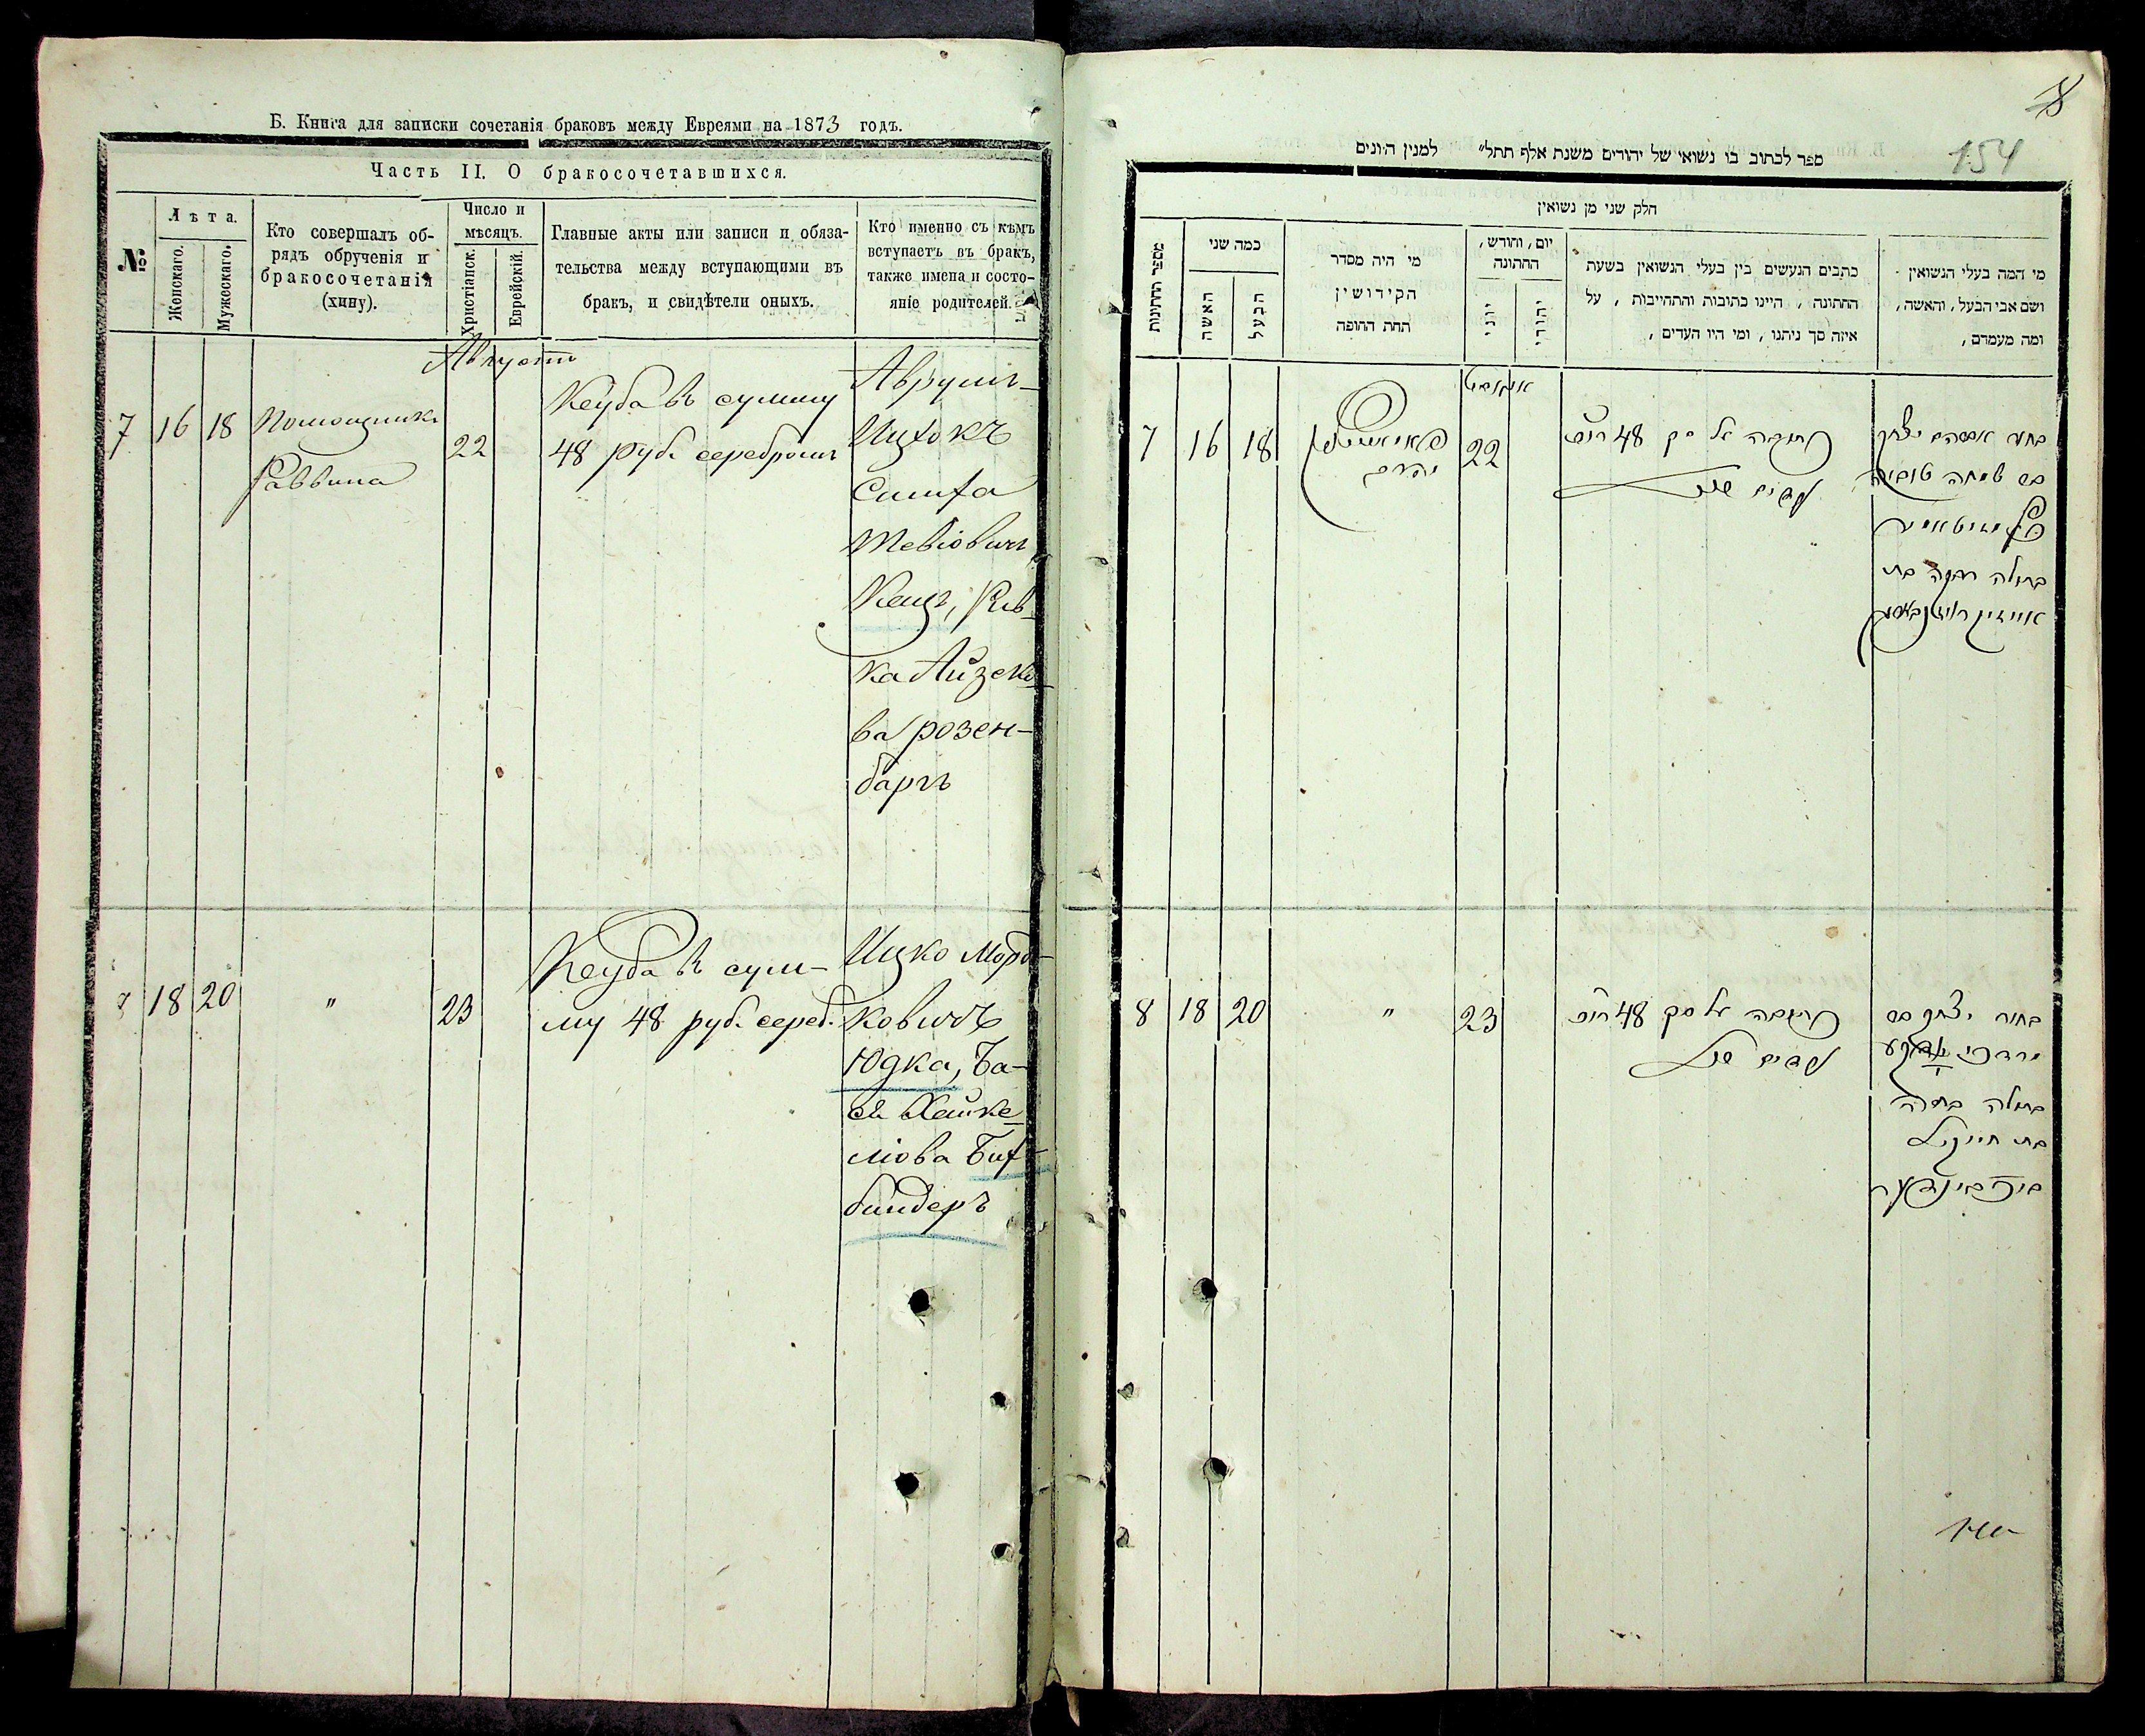 Б. Книга для записки сочетанія браковъ между Евреями на 1873 годъ.
Часть II. О бракосочетавшихся.
№
Лѣта.
Женскаго.
Мужескаго.
Кто совершалъ об-
рядъ обрученія и
бракосочетанія
(хину).
Число и
мѣсяцъ.
Христіанск.
Еврейскій.
Главные акты или записи и обяза-
тельства между вступающими въ
бракъ, и свидѣтели оныхъ.
Кто именно съ кѣмъ
вступаетъ въ бракъ,
также имена и состо-
яніе родителей.
Августъ
7 16 18
Помощникъ
Раввина
22
Кеуба въ сумму
48 руб. серебромъ
Аврумъ-
Ицхокъ
Симха
Тевіовичъ
Кацъ, Рив-
ка Айзеко-
ва Розен-
баргъ
18 20
"
23
Кеуба въ сум-
му 48 руб. сереб.
Ицко Морд-
ковичъ
Юдка, Ба-
ся Хайке-
ліова Бух-
биндеръ
154
ספר לכתוב בו נשואי של יהודים משנת אלף תתל״ למנין היונים
חלק שני מן נשואין
מספר החתונות
כמה שני
האשה
הבעל
מי היה מסדר
הקידושין
תחת החופה
יום, וחודש,
החתונה
יוני
יהודי
כתבים הנעשים בין בעלי הנשואין בשעת
החתונה, היינו כתובות והתחייבות, על
איזה סך ניתנו, ומי היו העדים,
מי המה בעלי הנשואין
ושם אבי הבעל, והאשה,
ומה מעמדם,
אויגוסט
7 16 18
22
כתובה על סך 48 רוכ
בחור אברהם יצחק
בם שמחה טוביה
בתולה רבקה בת
אייזיק ראזענבארג
8 18 20
"
23
כתובה על סך 48 רוכ
בחור יצחק בם
מרדכי
בתולה באסיה
בת חייקיל